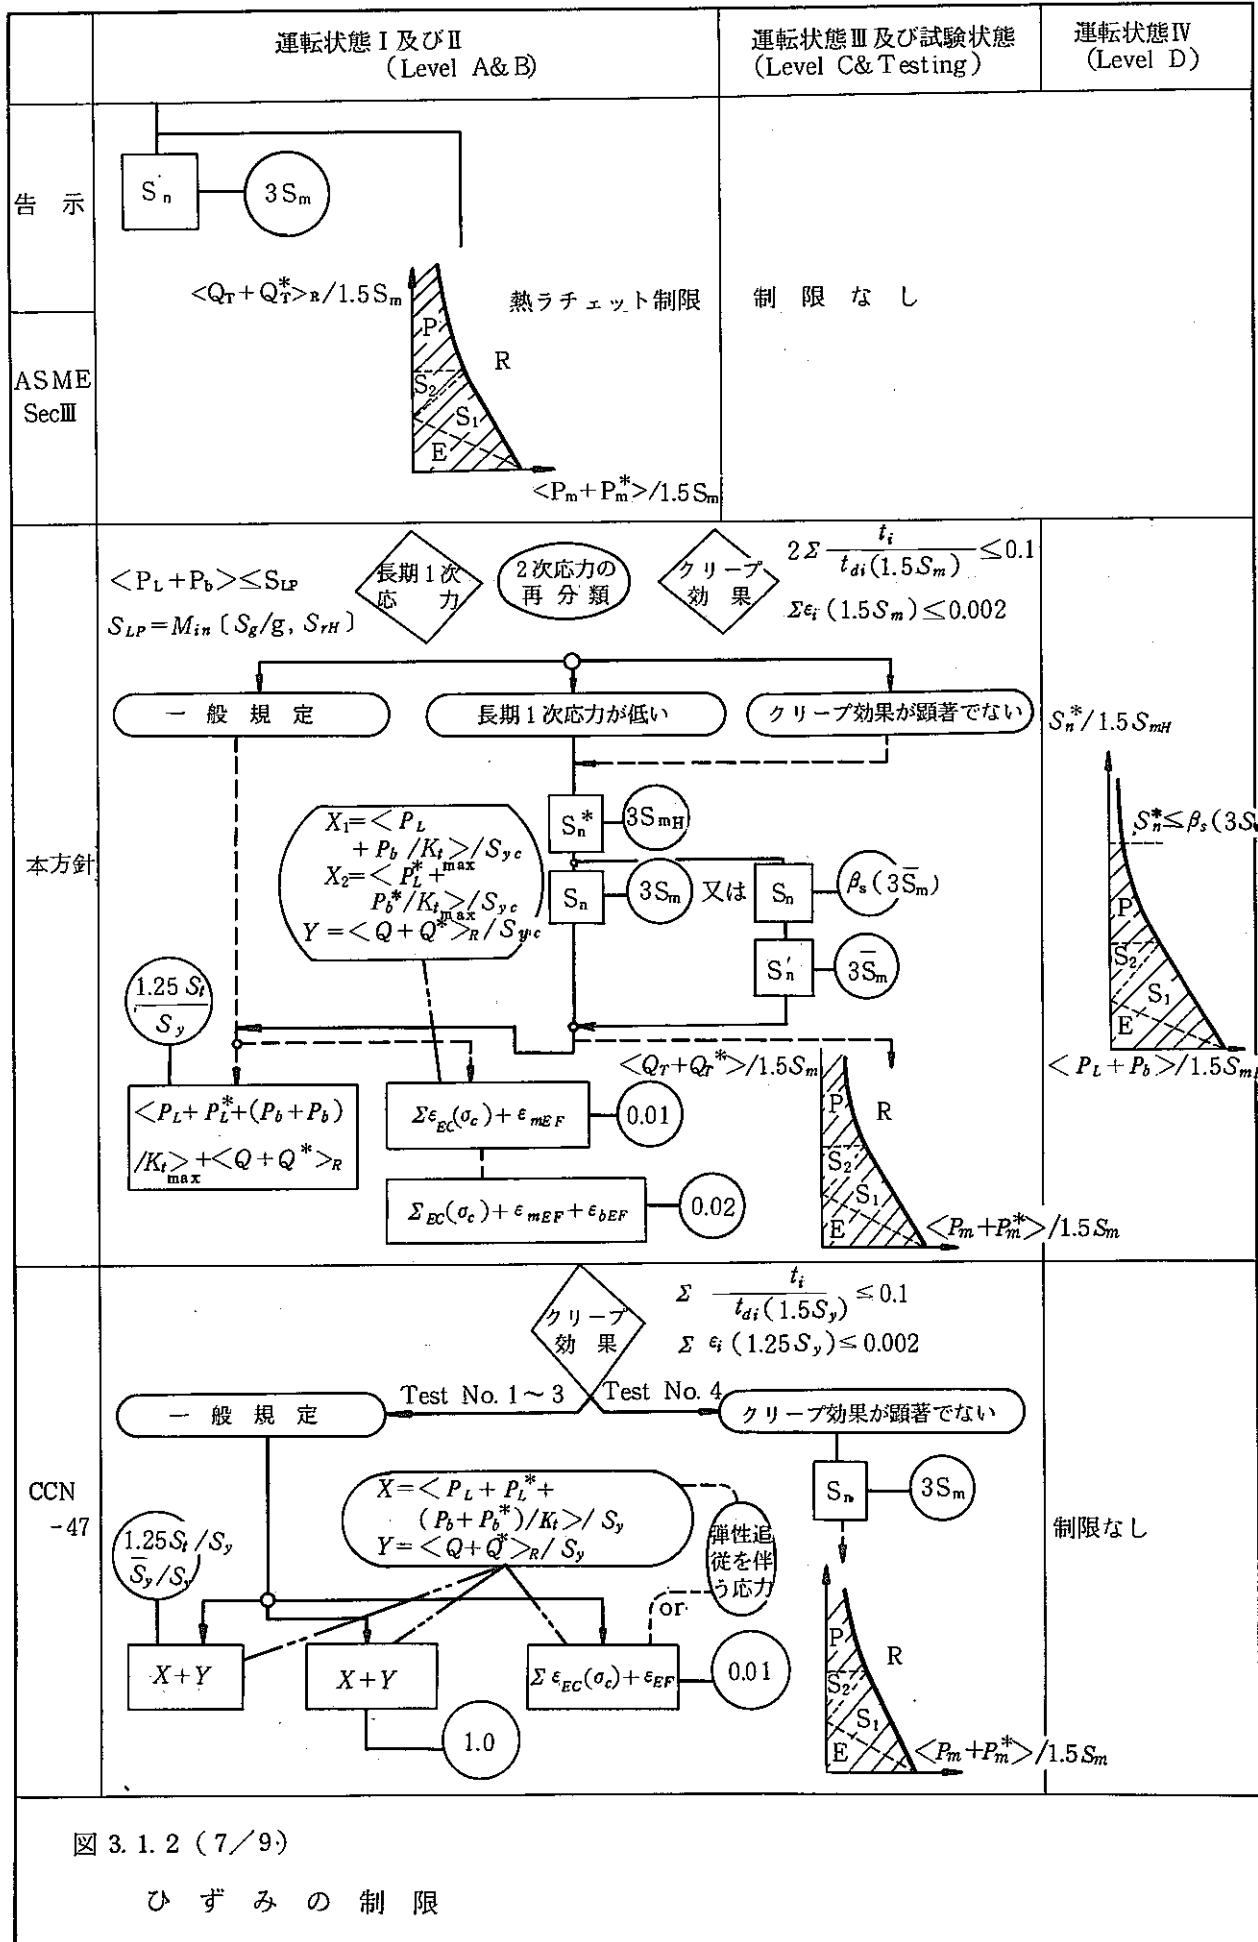 運転状態Ⅰ及びⅡ
(Level A&B)
運転状態Ⅲ及び試験状態
(Level C&Testing)
運転状態Ⅳ
(Level D)
告 示
Sn
3Sm
<QT+QT*>R/1.5Sm
熱ラチェット制限
制 限 な し
P
R
S2
S1
E
<Pm+Pm*>/1.5Sm
ASME
SecⅢ
本方針
<PL+Pb>≤SLP
SLP=Min〔Sg/g, SrH〕
長期1次
応 力
2次応力の
再分類
クリープ
効 果
2Σ ti/tdi(1.5Sm) ≤0.1
Σεi(1.5Sm)≤0.002
一 般 規 定
長期1次応力が低い
クリープ効果が顕著でない
X1=<PL
+Pb/Kt>/Syc
max
X2=<PL*+
Pb*/Kt>/Syc
max
Y=<Q+Q*>R/Syc
Sn*
3SmH
Sn
3Sm
又は
Sn
βs(3S̄m)
Sn′
3S̄m
1.25 St/Sy
<PL+PL*+(Pb+Pb)
/Kt>max+<Q+Q*>R
ΣεEC(σc)+εmEF
0.01
ΣEC(σc)+εmEF+εbEF
0.02
<QT+QT*>/1.5Sm
P
R
S2
S1
E
<Pm+Pm*>/1.5Sm
Sn*/1.5SmH
Sn*≤βs(3S
P
S2
S1
E
<PL+Pb>/1.5Sm
CCN
-47
クリープ
効 果
Σ ti/tdi(1.5Sy) ≤0.1
Σ εi(1.25Sy)≤0.002
Test No.1~3
Test No.4
一 般 規 定
クリープ効果が顕著でない
X=<PL+PL*+
(Pb+Pb*)/Kt>/Sy
Y=<Q+Q*>R/Sy
弾性追
従を伴
う応力
or
Sn
3Sm
制限なし
1.25St/Sy
S̄y/Sy
X+Y
X+Y
Σ εEC(σc)+εEF
0.01
1.0
P
R
S2
S1
E
<Pm+Pm*>/1.5Sm
図 3.1.2 (7/9)
ひ ず み の 制 限